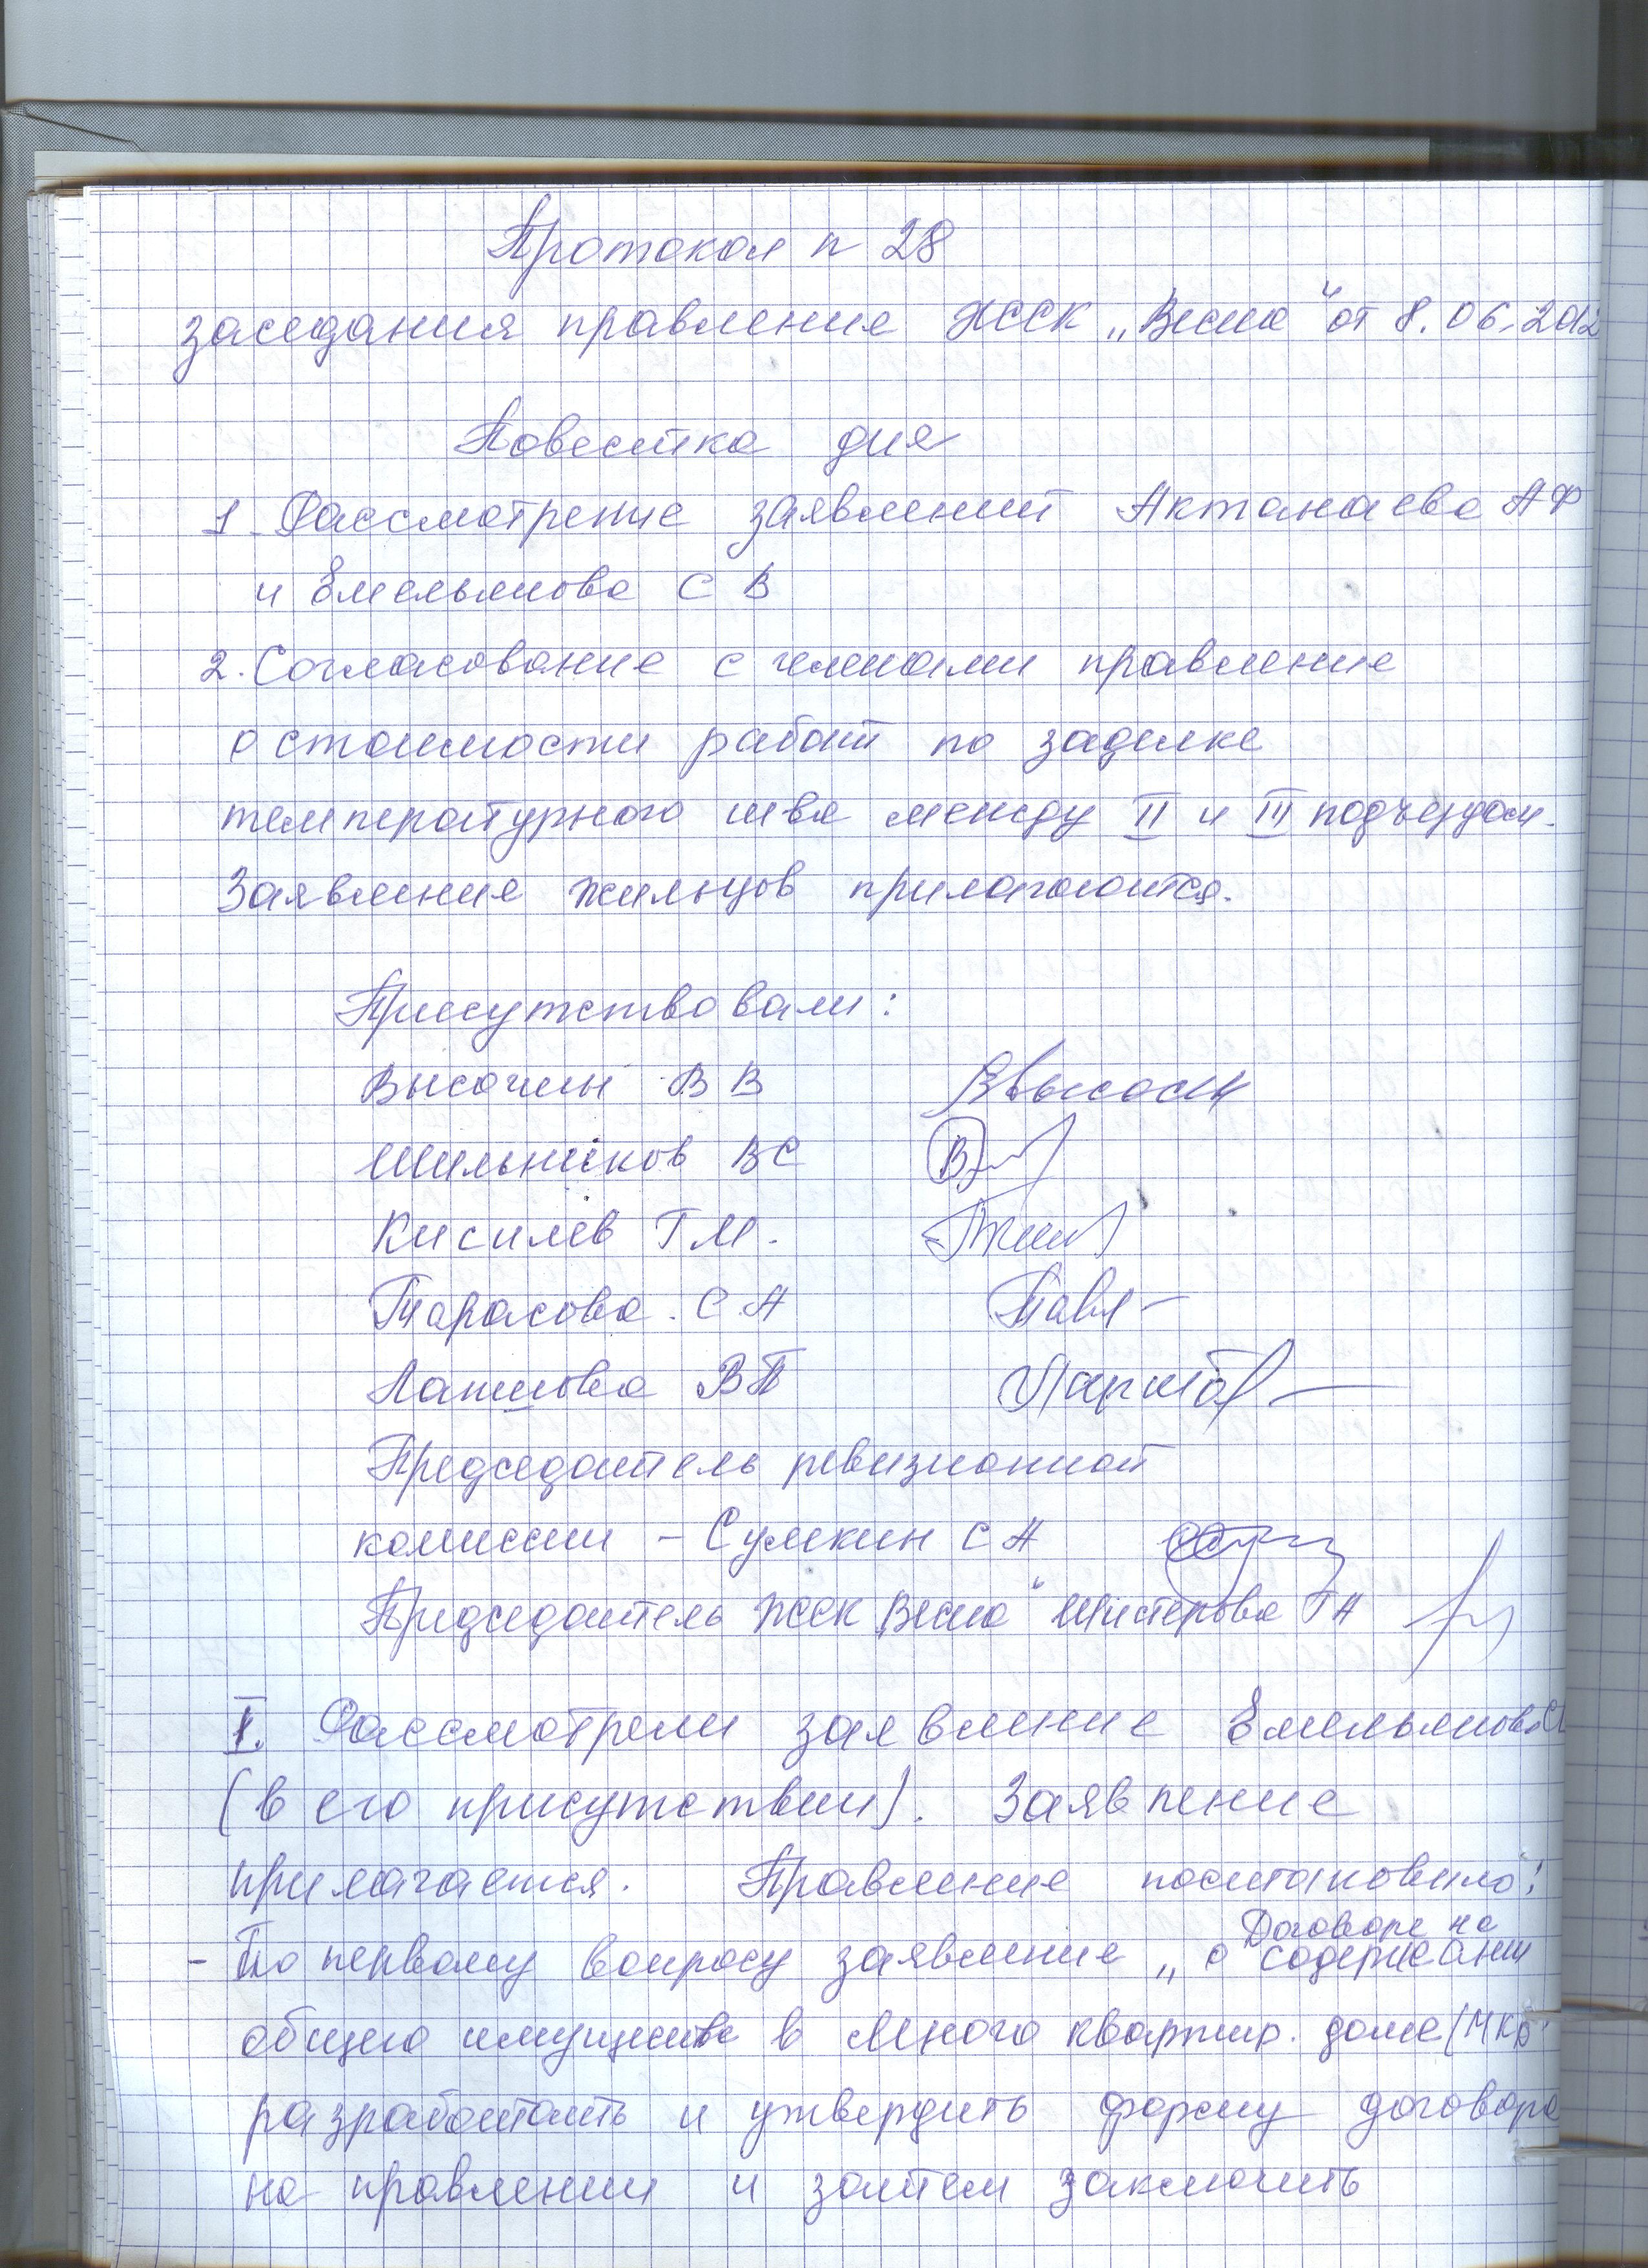 Протокол n 28
заседания правление ЖССК „Весна" от 8.06.2012
Повестка дня
1. Рассмотрение заявлений Актанаева АФ
и Емельянова С В
2. Согласование с членами правление
о стоимости работ по заделке
температурного шва между II и III подъездом.
Заявление жильцов прилагаются.
Присутствовали:
Высочин В В
Шильников ВС
Кисилёв Г М.
Тарасова. С А
Лапшова ВП
Председатель ревизионной
комиссии - Сумкин С А
Председатель ЖССК „Весна" Шистерова ГА
I. Рассмотрели заявление Емельянова
(в его присутствии). Заявление
прилагается. Правление постановило:
Договоре на
- По первому вопросу заявление „о содержании
общего имущества в многоквартир. доме (МКД
разработать и утвердить форму договора
на правлении и затем заключить